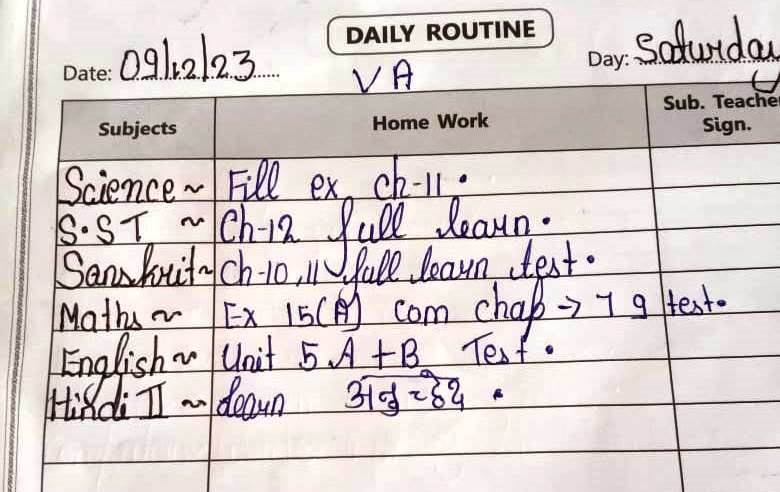 DAILY ROUTINE
Date: 09/12/23 Day: Saturday
V A
Subjects Home Work Sub. Teacher Sign.
Science ~ Fill ex ch-11.
S.ST ~ Ch-12 full learn.
Sanskrit ~ Ch-10, 11 full learn test.
Maths ~ Ex 15(A) com chap → 7 9 test.
English ~ Unit 5 A + B Test.
Hindi II ~ learn